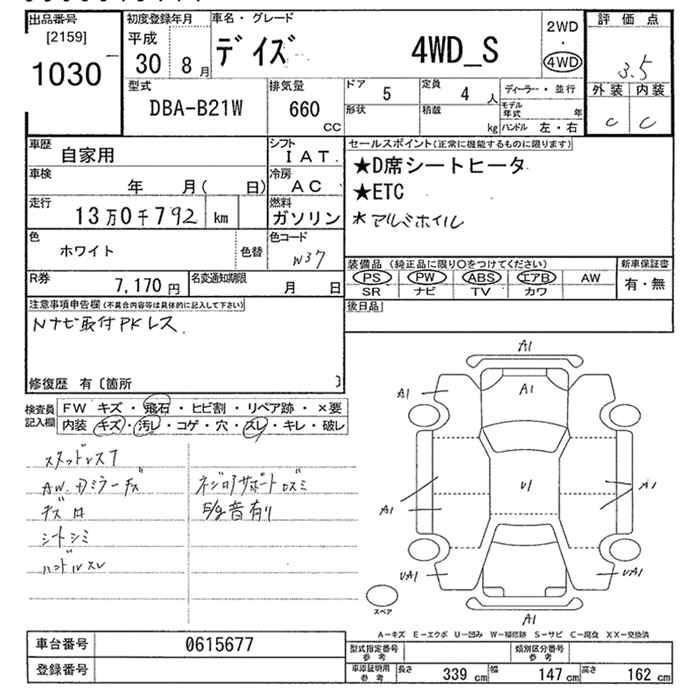 出品番号
[2159]
1030
初度登録年月
平成
30 8月
車名・グレード
デイズ 4WD_S
2WD
・
4WD
評価点
3.5
外装 内装
C C
型式
DBA-B21W
排気量
660
CC
ドア 5
定員 4 人
形状
積載 kg
ディーラー・並行
モデル年式 年
ハンドル 左・右
車歴 自家用
シフト
IAT
車検 年 月( 日)
冷房
AC
走行 13万0千792 km
燃料
ガソリン
色 ホワイト 色替
色コード
W37
R券 7,170円
名変通知期限 月 日
セールスポイント(正常に機能するものに限ります)
★D席シートヒータ
★ETC
*アルミホイル
装備品(純正品に限り○をつけてください)
PS PW ABS エアB AW
SR ナビ TV カワ
新車保証書
有・無
後日品
注意事項申告欄(不具合内容等は具体的に記入して下さい)
Nナビ取付PKレス
修復歴 有〔箇所 〕
検査員記入欄
FW キズ・飛石・ヒビ割・リペア跡・×要
内装 キズ・汚レ・コゲ・穴・スレ・キレ・破レ
スタッドレス7
AW.Dミラーキズ
シートシミ
ハンドルスレ
異音有り
A1
A1
A1
A1
U1
A1
A1
UA1
UA1
A1
スペア
A-キズ E-エクボ U-凹み W-補修跡 S-サビ C-腐食 XX-交換済
車台番号 0615677
登録番号
型式指定番号
参考
類別区分番号
参考
車庫証明用
参考
長さ 339 cm 幅 147 cm 高さ 162 cm